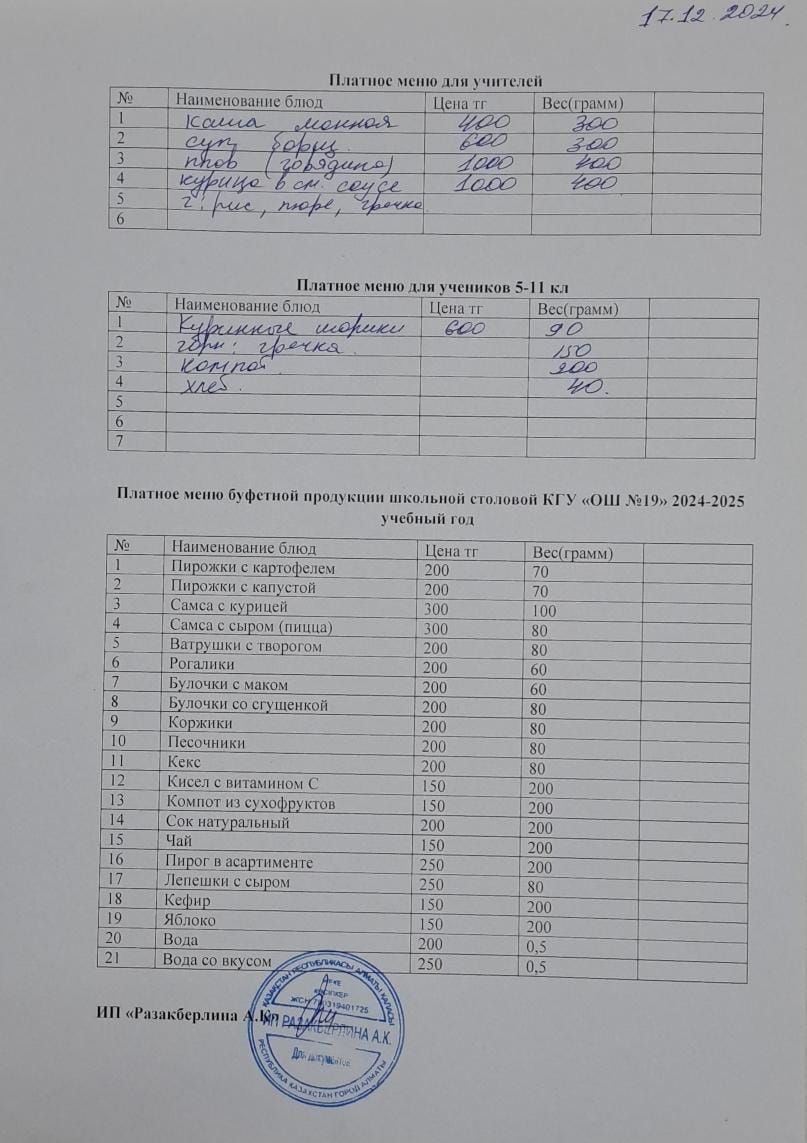 17.12.2024
Платное меню для учителей
№ Наименование блюд Цена тг Вес(грамм)
1 Каша манная 400 300
2 суп борщ. 600 300
3 плов (говядина) 1000 400
4 курица в см. соусе 1000 400
5 г: рис, пюре, гречка
6
Платное меню для учеников 5-11 кл
№ Наименование блюд Цена тг Вес(грамм)
1 Куринные шарики 600 90
2 гарн: гречка. 150
3 компот. 200
4 хлеб. 40.
5
6
7
Платное меню буфетной продукции школьной столовой КГУ «ОШ №19» 2024-2025
учебный год
№ Наименование блюд Цена тг Вес(грамм)
1 Пирожки с картофелем 200 70
2 Пирожки с капустой 200 70
3 Самса с курицей 300 100
4 Самса с сыром (пицца) 300 80
5 Ватрушки с творогом 200 80
6 Рогалики 200 60
7 Булочки с маком 200 60
8 Булочки со сгущенкой 200 80
9 Коржики 200 80
10 Песочники 200 80
11 Кекс 200 80
12 Кисел с витамином С 150 200
13 Компот из сухофруктов 150 200
14 Сок натуральный 200 200
15 Чай 150 200
16 Пирог в асартименте 250 200
17 Лепешки с сыром 250 80
18 Кефир 150 200
19 Яблоко 150 200
20 Вода 200 0,5
21 Вода со вкусом 250 0,5
ИП «Разакберлина А.К»
ҚАЗАҚСТАН РЕСПУБЛИКАСЫ АЛМАТЫ ҚАЛАСЫ
ЖЕКЕ
КӘСІПКЕР
ИП РАЗАКБЕРЛИНА А.К.
Для документов
РЕСПУБЛИКА КАЗАХСТАН ГОРОД АЛМАТЫ